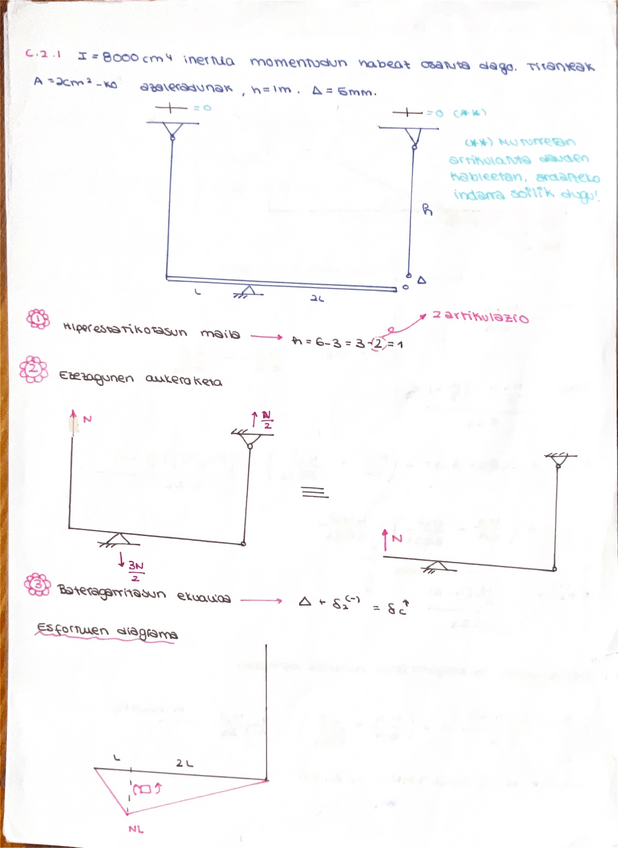 C.2.1 I = 8000 cm⁴ inertzia momentudun habeat osatuta dago. Tiranteak
A = 2cm² -ko azaleradunak, h = 1m. Δ = 5mm.
= 0
= 0 (**)
(**) Muturretan
artikulatuta dauden
kableetan,
indarra soilik dugu!
h
Δ
L
2L
1 Hiperestatikotasun maila → h = 6-3 = 3-2 = 1
2 artikulazio
2 Ezezagunen aukeraketa
N
N/2
3N/2
≡
N
3 Bateragarritasun ekuazioa → Δ + δ₂⁽⁻⁾ = δc↑
Esfortzuen diagrama
L
2L
NL